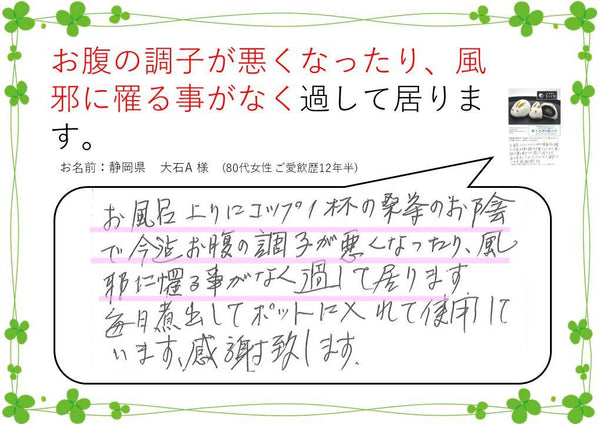 お腹の調子が悪くなったり、風
邪に罹る事がなく過して居りま
す。
お名前：静岡県 大石A 様 （80代女性 ご愛飲歴12年半）
お風呂上りにコップ1杯の桑茶のお陰
で今迄お腹の調子が悪くなったり、風
邪に罹る事がなく過して居ります
毎日煮出してポットに入れて使用して
います、感謝致します